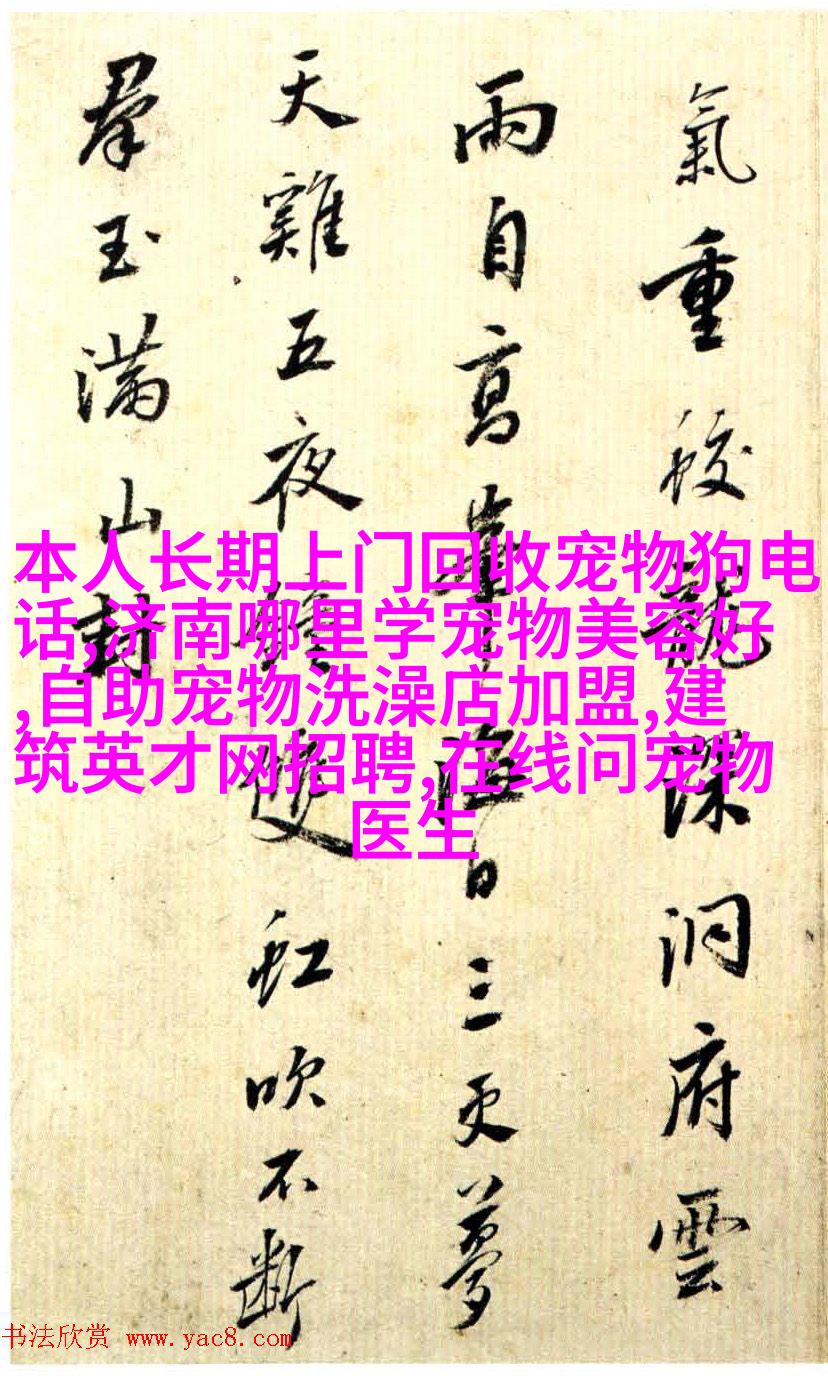 氣重蛟龍深洞府雲
雨自高峯海日三更夢
天雞五夜鐘雙虹吹不斷
羣玉滿山封
本人长期上门回收宠物狗电
话,济南哪里学宠物美容好
,自助宠物洗澡店加盟,建
筑英才网招聘,在线问宠物
医生
书法欣赏 www.yac8.com